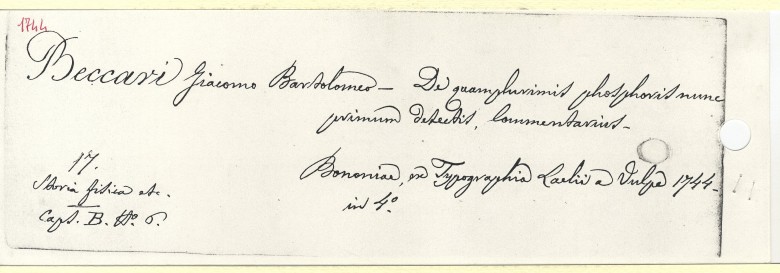 1744
Beccari Giacomo Bartolomeo — De quamplurimis phosphoris nunc
primum detectis, Commentarius —
Bononiae, ex Typographia Laelii a Vulpe 1744 —
in 4°.
17.
Storia fisica etc.
Caps. B. N.° 6.